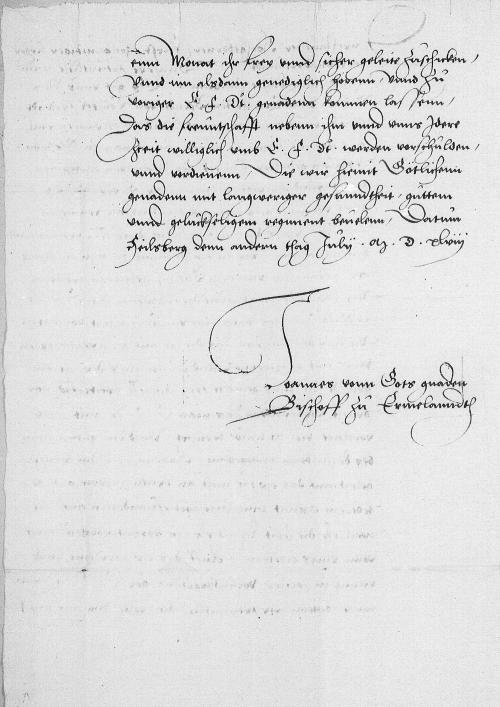 einn Monat ihr frey vnnd sicher geleitt zuschicken,
Vnnd inn alsdann genediglich horenn, vnnd zu
voriger E. F. Dt. genadenn kommen lassenn,
Das die freuntschafft nebenn ihm vnnd vnns Idere
Zeit williglich vmb E. F. Dt. werden vorschulden,
vnnd vordienenn, Die wir hiemit Gotlichenn
genadenn mit langweriger gesundtheit, guttem
vnnd geluckseligem regiment beuelenn, Datum
Heilsberg denn andern thag Julij. M. D. xlviij
Joannes vonn Gots gnaden
Bischoff zu Ermelanndt